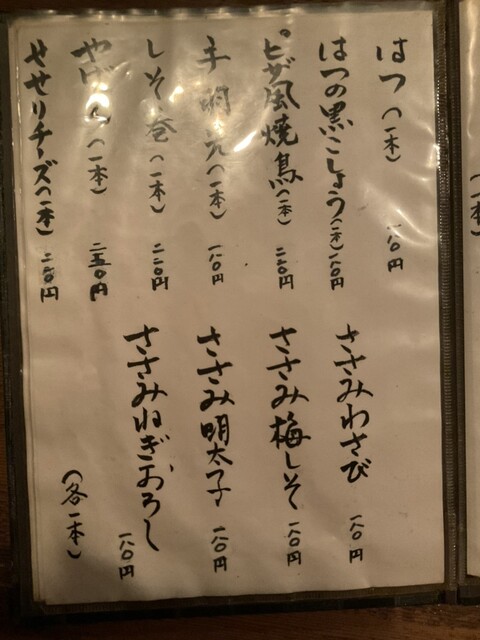 （一本）
はつ（一本） 一八〇円
はつの黒こしょう（一本）一八〇円
ピザ風焼鳥（一本）
手羽先（一本） 一八〇円
しそ巻（一本） 二二〇円
やげん（一本） 二五〇円
せせりチーズ（一本）
ささみわさび 一八〇円
ささみ梅しそ 一八〇円
ささみ明太子 一八〇円
ささみねぎおろし 一八〇円
（各一本）